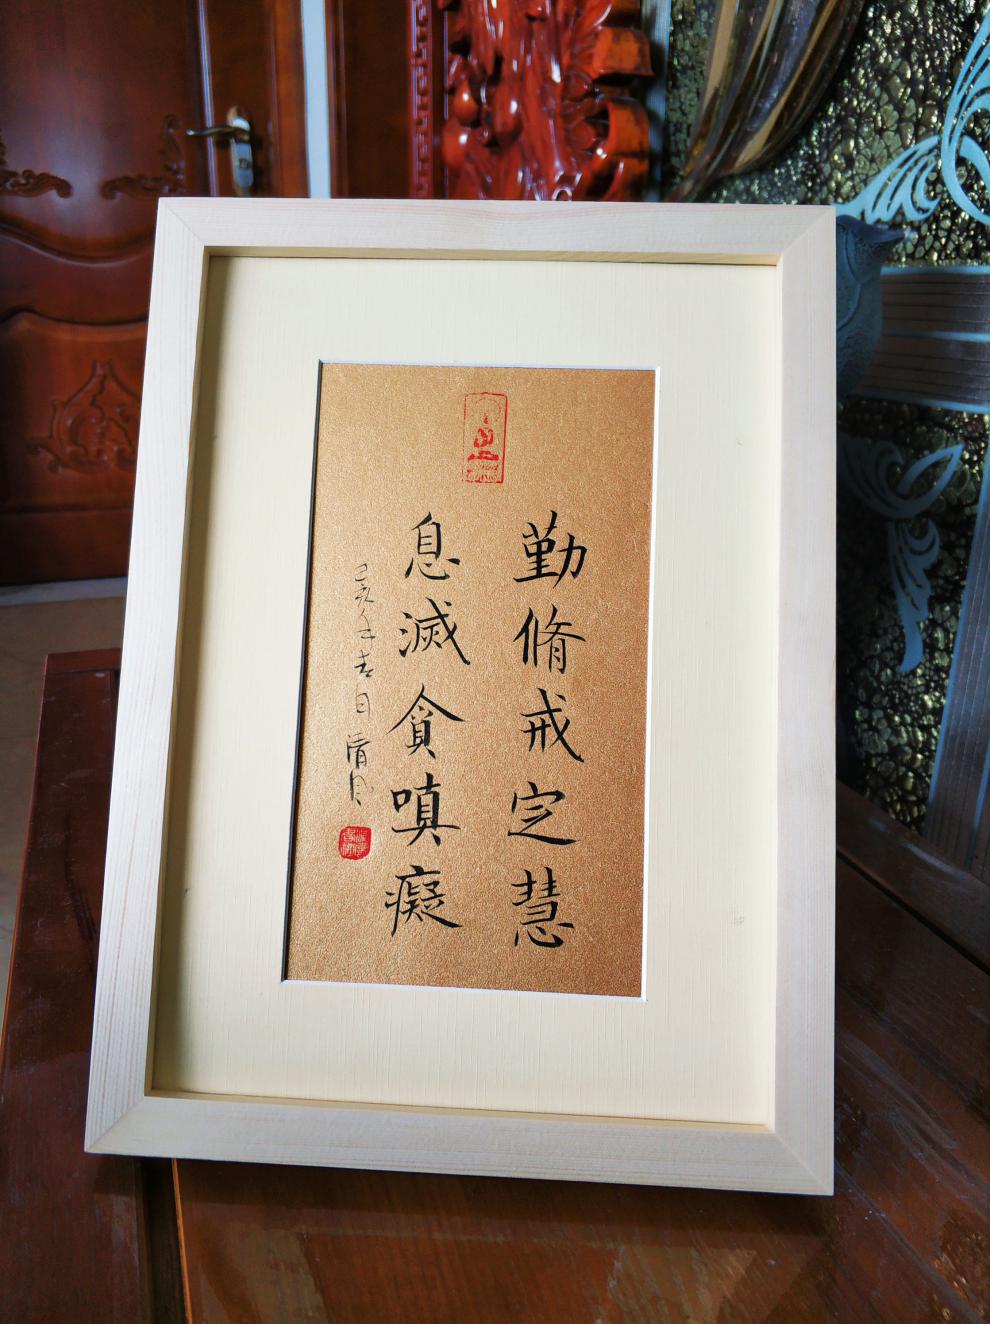 勤脩戒定慧
息滅貪嗔癡
己亥年吉日清風